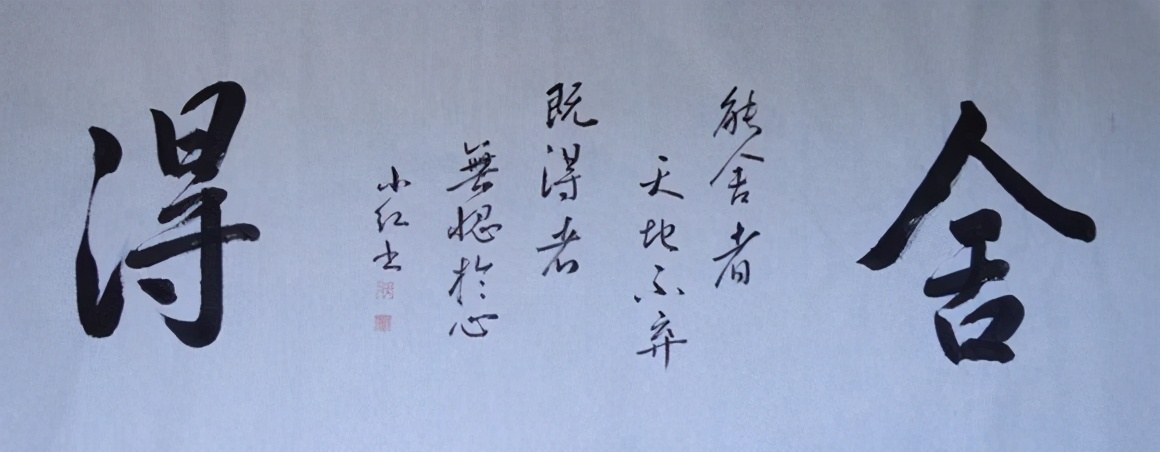 舍
能舍者
天地不弃
既得者
無愧於心
小红书
得